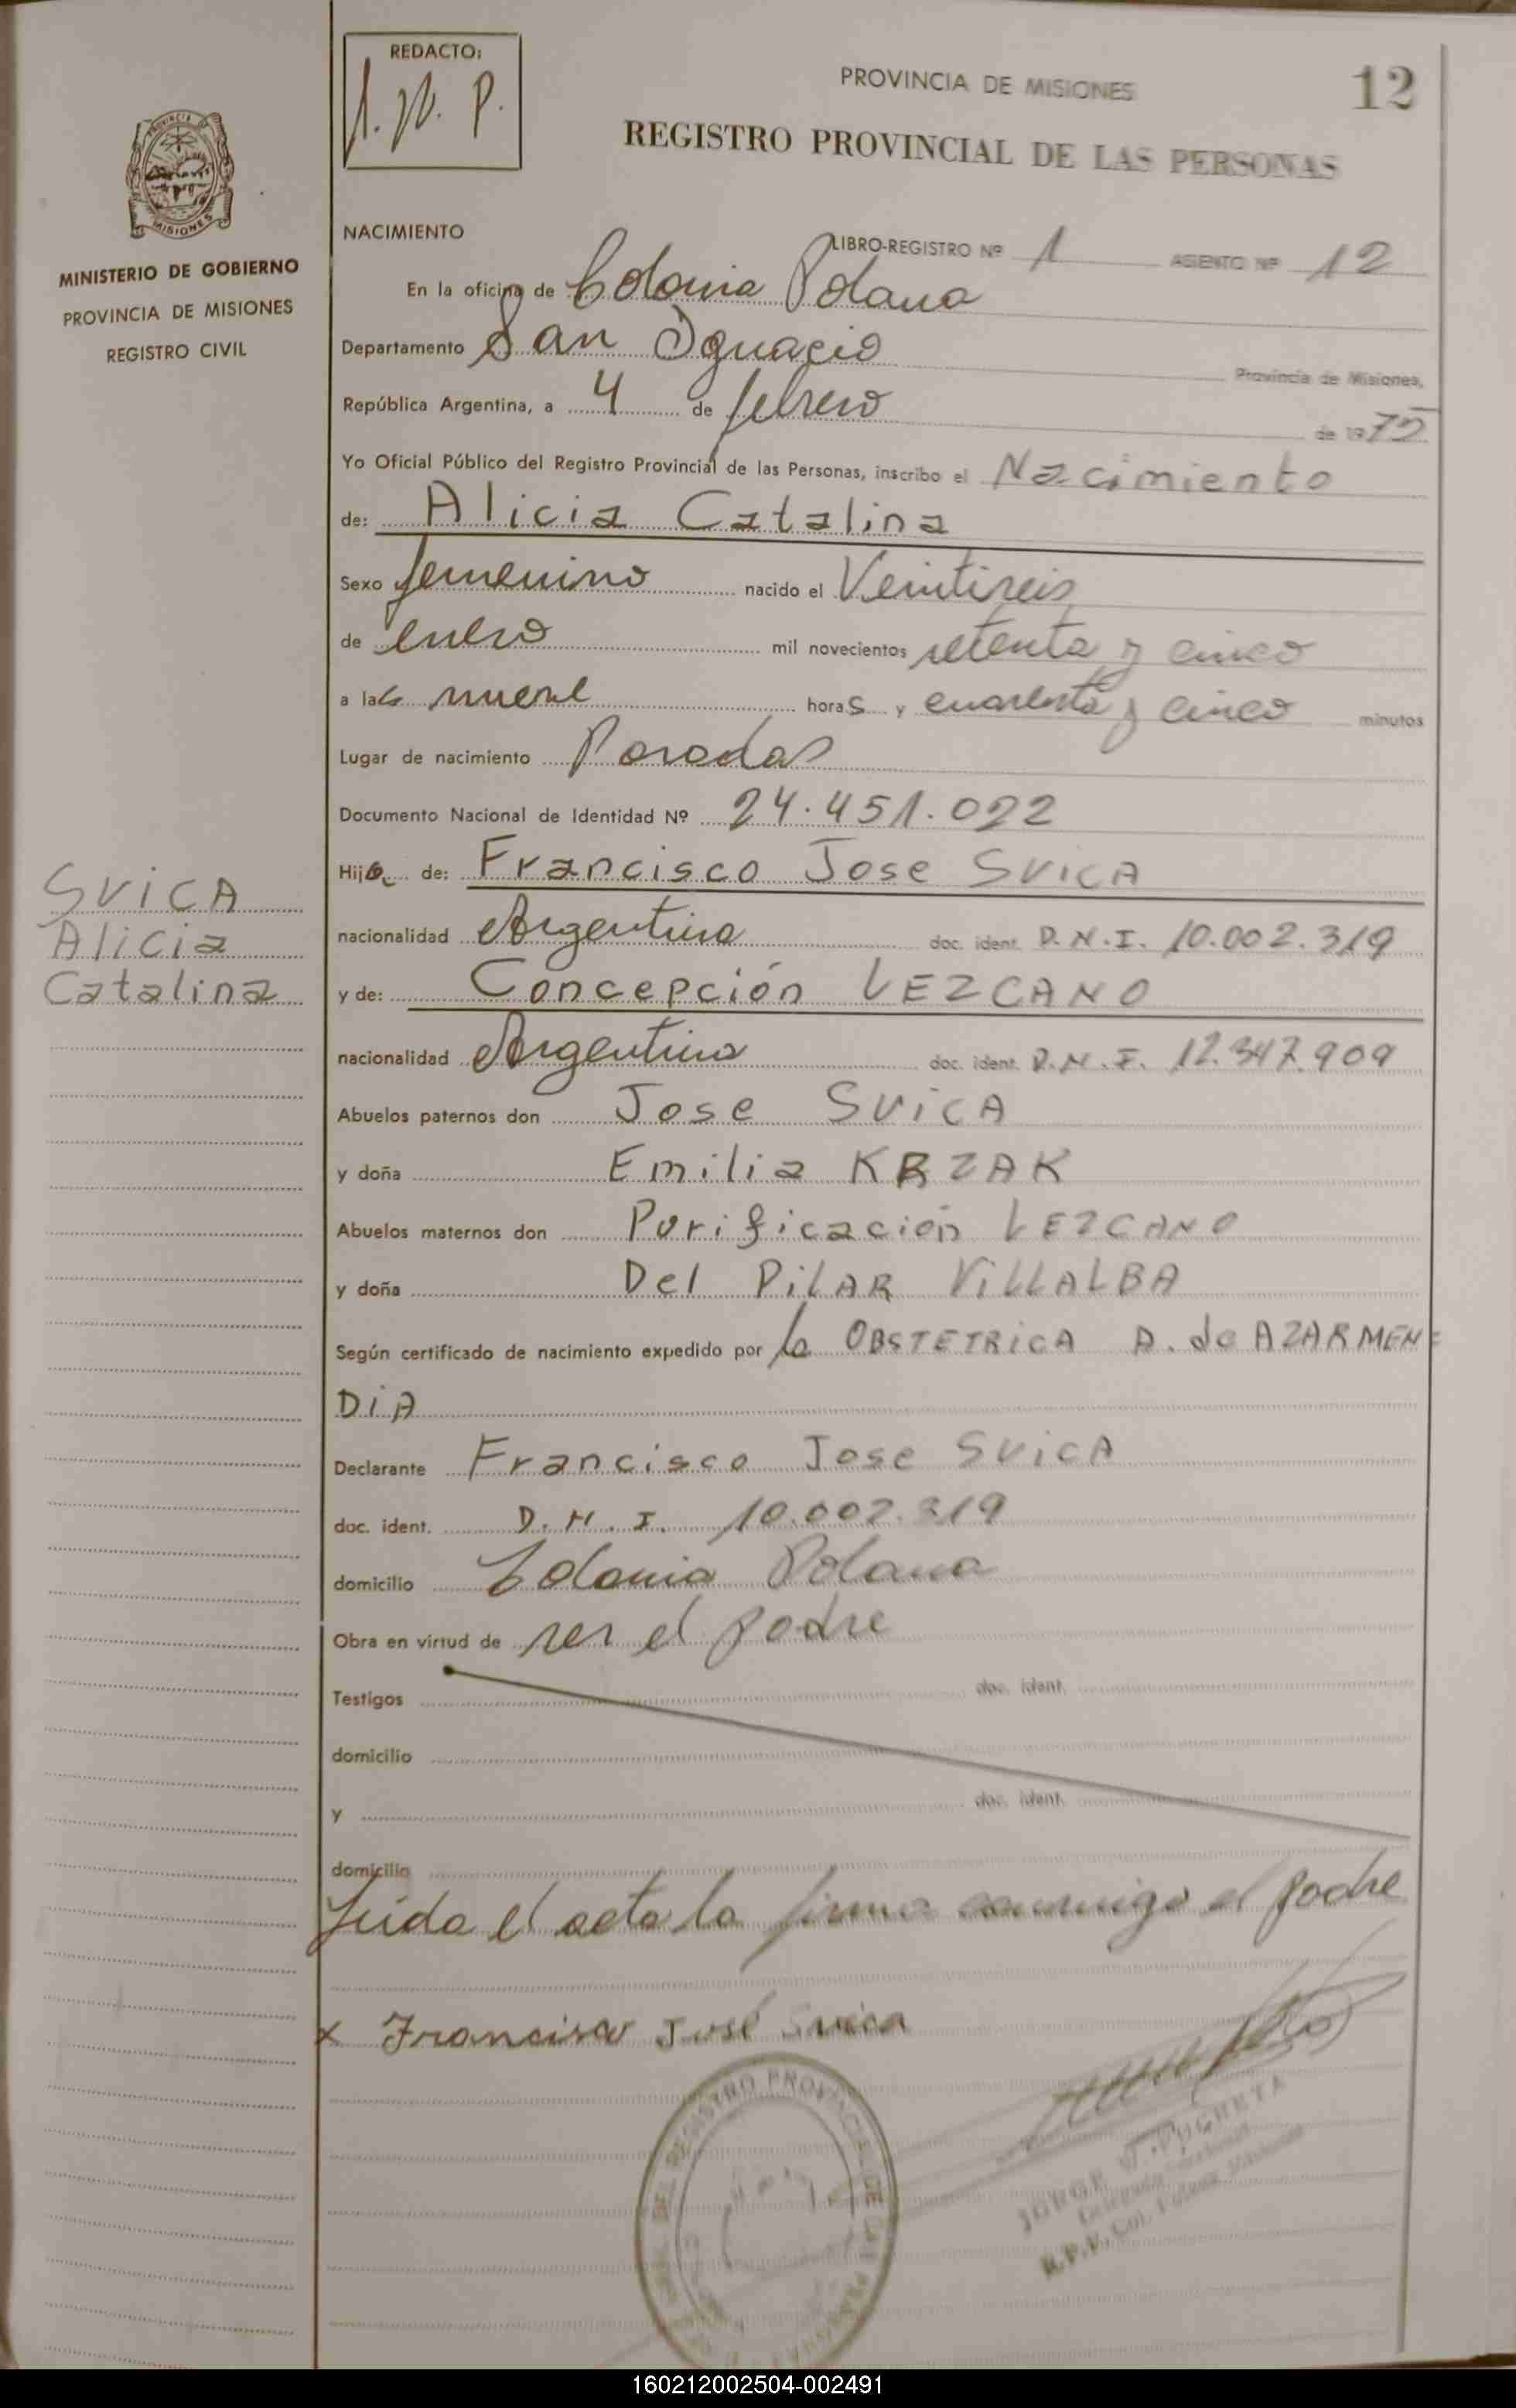 REDACTO:
PROVINCIA DE MISIONES
12
REGISTRO PROVINCIAL DE LAS PERSONAS
MISIONES
MINISTERIO DE GOBIERNO
PROVINCIA DE MISIONES
REGISTRO CIVIL
NACIMIENTO
LIBRO-REGISTRO Nº 1 ASIENTO Nº 12
En la oficina de Colonia Polana
Departamento San Ignacio Provincia de Misiones,
República Argentina, a 4 de febrero de 1975
Yo Oficial Público del Registro Provincial de las Personas, inscribo el Nacimiento
de: Alicia Catalina
Sexo femenino nacido el Veintiseis
de enero mil novecientos setenta y cinco
a las nueve horas y cuarenta y cinco minutos
Lugar de nacimiento Posadas
Documento Nacional de Identidad Nº 24.451.022
Hija de: Francisco Jose SVICA
nacionalidad Argentina doc. ident. D.N.I. 10.002.319
y de: Concepción LEZCANO
nacionalidad Argentina doc. ident. D.N.I. 12.347.909
SVICA
Alicia
Catalina
Abuelos paternos don Jose SVICA
y doña Emilia KRZAK
Abuelos maternos don Purificación LEZCANO
y doña Del PILAR VILLALBA
Según certificado de nacimiento expedido por la OBSTETRICA A. de AZARMEN=
DIA
Declarante Francisco Jose SVICA
doc. ident. D.N.I. 10.002.319
domicilio Colonia Polana
Obra en virtud de ser el padre
Testigos doc. ident.
domicilio
y doc. ident.
domicilio
Leida el acta la firma conmigo el padre
x Francisco José Svica
DEL REGISTRO PROVINCIAL DE LAS PERSONAS
JORGE
R.P.P. Col. Polana Misiones
160212002504-002491